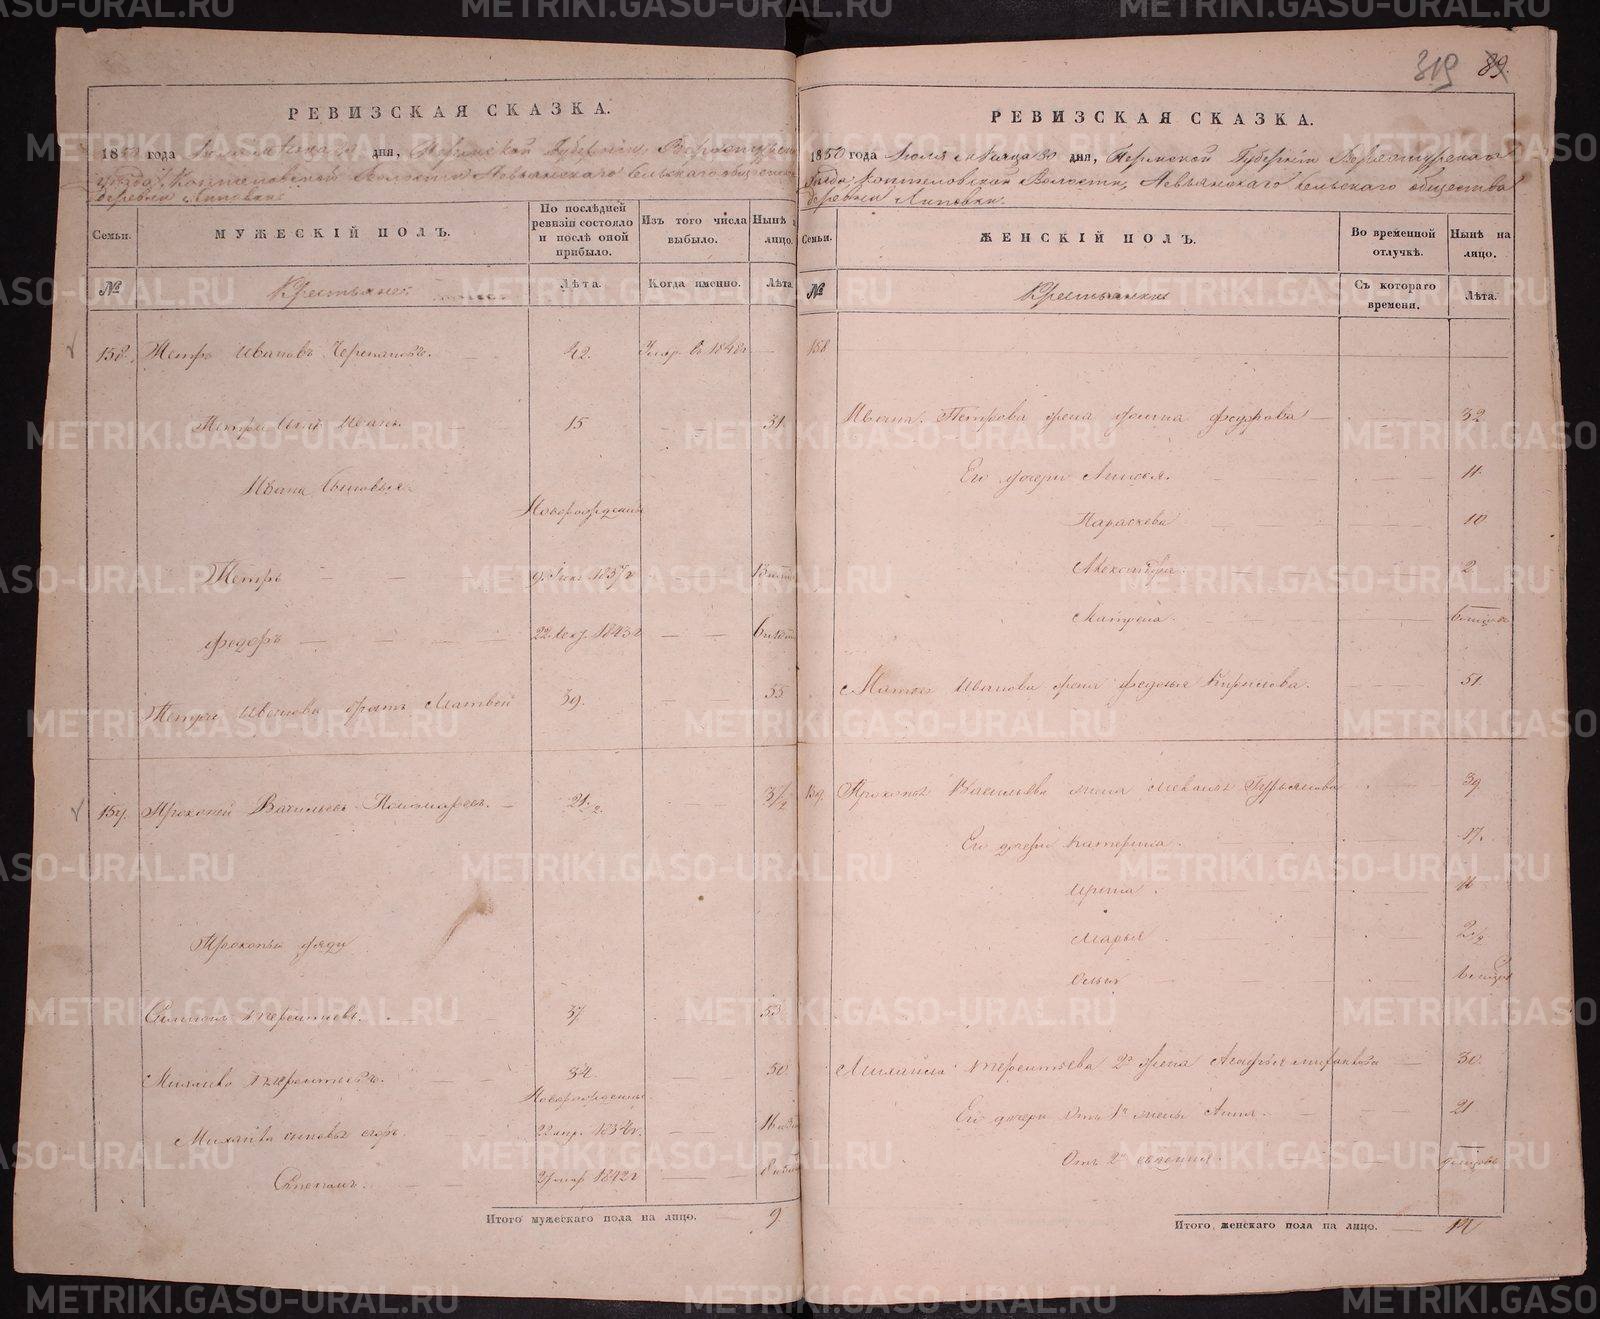 319 89.
РЕВИЗСКАЯ СКАЗКА.
1850 года Іюля мѣсяца дня, Пермской Губерніи Верхотурскаго
уѣзда, Коптеловской Волости Невьянскаго сельскаго общества
деревни Липовки
Семьи.
МУЖЕСКІЙ ПОЛЪ.
По послѣдней ревизіи состояло и послѣ оной прибыло.
Изъ того числа выбыло.
Нынѣ лицо.
№
Крестьяне
Лѣта.
Когда именно.
Лѣта
158. Петръ Ивановъ Черепановъ. 42. Умер. въ 1848г
Петра сынъ Иванъ 15 31
Ивана сыновья
Новорожденные
Петръ 9. 1837г
Федоръ 22. 1843г
Петра Иванова братъ Матвей 39. 55
159. Прокопей Васильевъ Пономаревъ. 21 1/2.
Прокопья дяди
Терентьевъ. 37 53
Михайло Терентьевъ. 34. 50
Новорожденные
Михайла сыновья Егоръ. 22 апр. 1834г.
Степанъ. 27 мар 1842г
Итого мужескаго пола на лицо. 9
РЕВИЗСКАЯ СКАЗКА.
1850 года Іюля мѣсяца 30 дня, Пермской Губерніи Верхотурскаго
уѣзда, Коптеловской Волости, Невьянскаго сельскаго общества
деревни Липовки.
Семьи.
ЖЕНСКІЙ ПОЛЪ.
Во временной отлучкѣ.
Нынѣ на лицо.
№
Крестьянки
Съ котораго времени.
Лѣта.
158
Ивана Петрова жена Федорова 32
Его дочери 11
Параскева 10
Александра 2
Матрена. 6 мѣсяц
Матвея Иванова жена Федосья Кирилова. 51.
159. Прокопья Васильева жена Гурьянова 39
Его дочери Катерина. 17.
Ирина
Марья 2 1/2
Ольга мѣсяц
Михайла Терентьева 2я жена Агафья 30.
Его дочери отъ 1й жены Анна. 21
Отъ 2й мѣсяцовъ
Итого женскаго пола на лицо. 12
METRIKI.GASO-URAL.RU